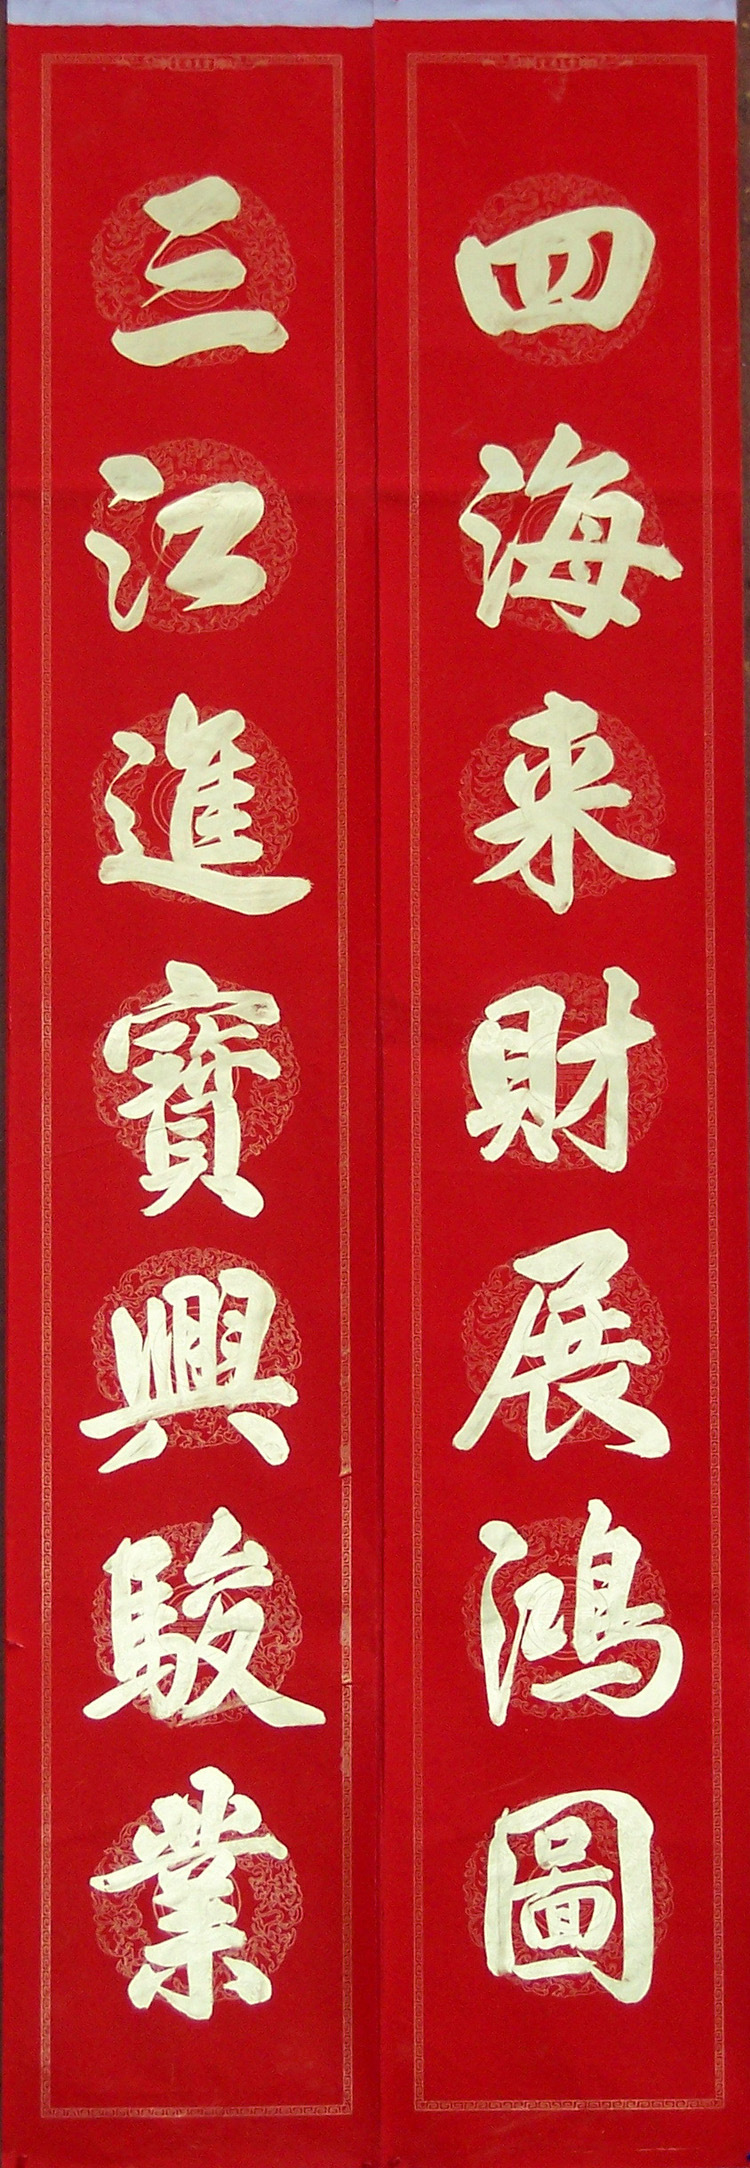 四海来財展鴻圖
三江進寶興駿業